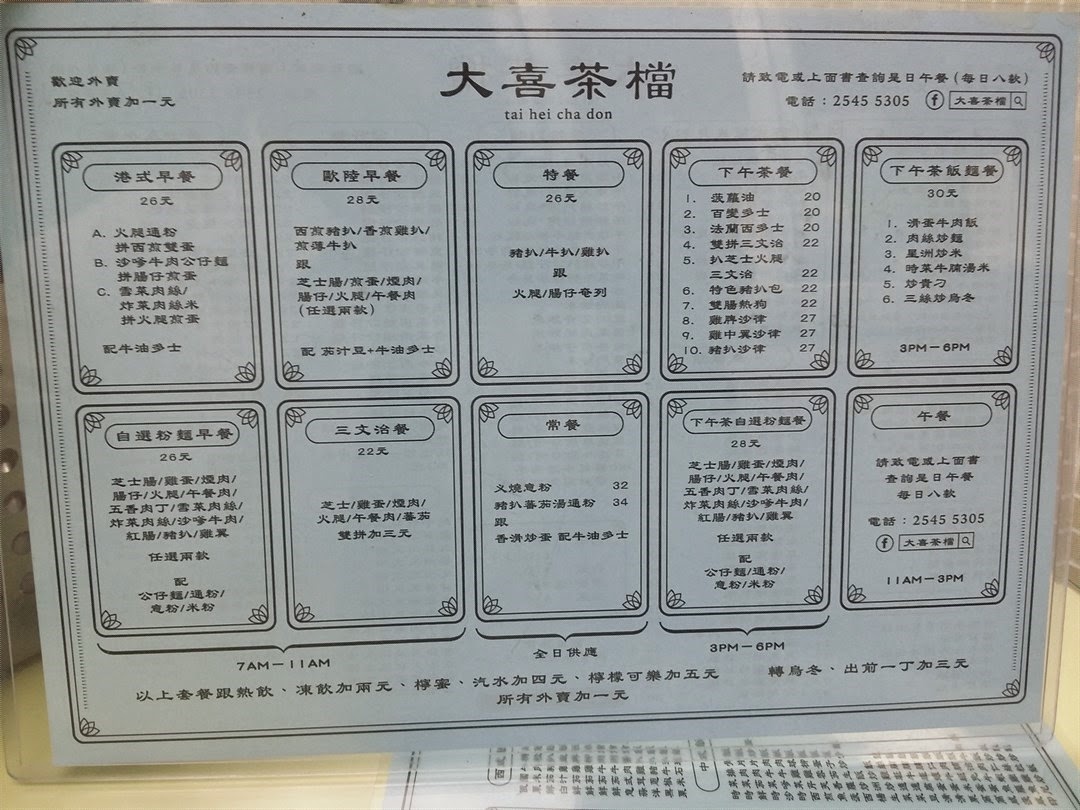 歡迎外賣
所有外賣加一元
大喜茶檔
tai hei cha don
請致電或上面書查詢是日午餐(每日八款)
電話：2545 5305 f 大喜茶檔
港式早餐
26元
A. 火腿通粉
拼西煎雙蛋
B. 沙嗲牛肉公仔麵
拼腸仔煎蛋
C. 雪菜肉絲/
炸菜肉絲米
拼火腿煎蛋
配牛油多士
歐陸早餐
28元
西煎豬扒/香煎雞扒/
煎薄牛扒
跟
芝士腸/煎蛋/煙肉/
腸仔/火腿/午餐肉
(任選兩款)
配 茄汁豆+牛油多士
特餐
26元
豬扒/牛扒/雞扒
跟
火腿/腸仔奄列
下午茶餐
1. 菠蘿油 20
2. 百變多士 20
3. 法蘭西多士 20
4. 雙拼三文治 22
5. 扒芝士火腿
三文治 22
6. 特色豬扒包 22
7. 雙腸熱狗 22
8. 雞髀沙律 27
9. 雞中翼沙律 27
10. 豬扒沙律 27
下午茶飯麵餐
30元
1. 滑蛋牛肉飯
2. 肉絲炒麵
3. 星洲炒米
4. 時菜牛腩湯米
5. 炒貴刁
6. 三絲炒烏冬
3PM－6PM
自選粉麵早餐
26元
芝士腸/雞蛋/煙肉/
腸仔/火腿/午餐肉/
五香肉丁/雪菜肉絲/
炸菜肉絲/沙嗲牛肉/
紅腸/豬扒/雞翼
任選兩款
配
公仔麵/通粉/
意粉/米粉
三文治餐
22元
芝士/雞蛋/煙肉/
火腿/午餐肉/蕃茄
雙拼加三元
常餐
义燒意粉 32
豬扒蕃茄湯通粉 34
跟
香滑炒蛋 配牛油多士
下午茶自選粉麵餐
28元
芝士腸/雞蛋/煙肉/
腸仔/火腿/午餐肉/
五香肉丁/雪菜肉絲/
炸菜肉絲/沙嗲牛肉/
紅腸/豬扒/雞翼
任選兩款
配
公仔麵/通粉/
意粉/米粉
午餐
請致電或上面書
查詢是日午餐
每日八款
電話：2545 5305
f 大喜茶檔
11AM－3PM
7AM－11AM
全日供應
3PM－6PM
以上套餐跟熱飲、凍飲加兩元、檸蜜、汽水加四元、檸檬可樂加五元
轉烏冬、出前一丁加三元
所有外賣加一元